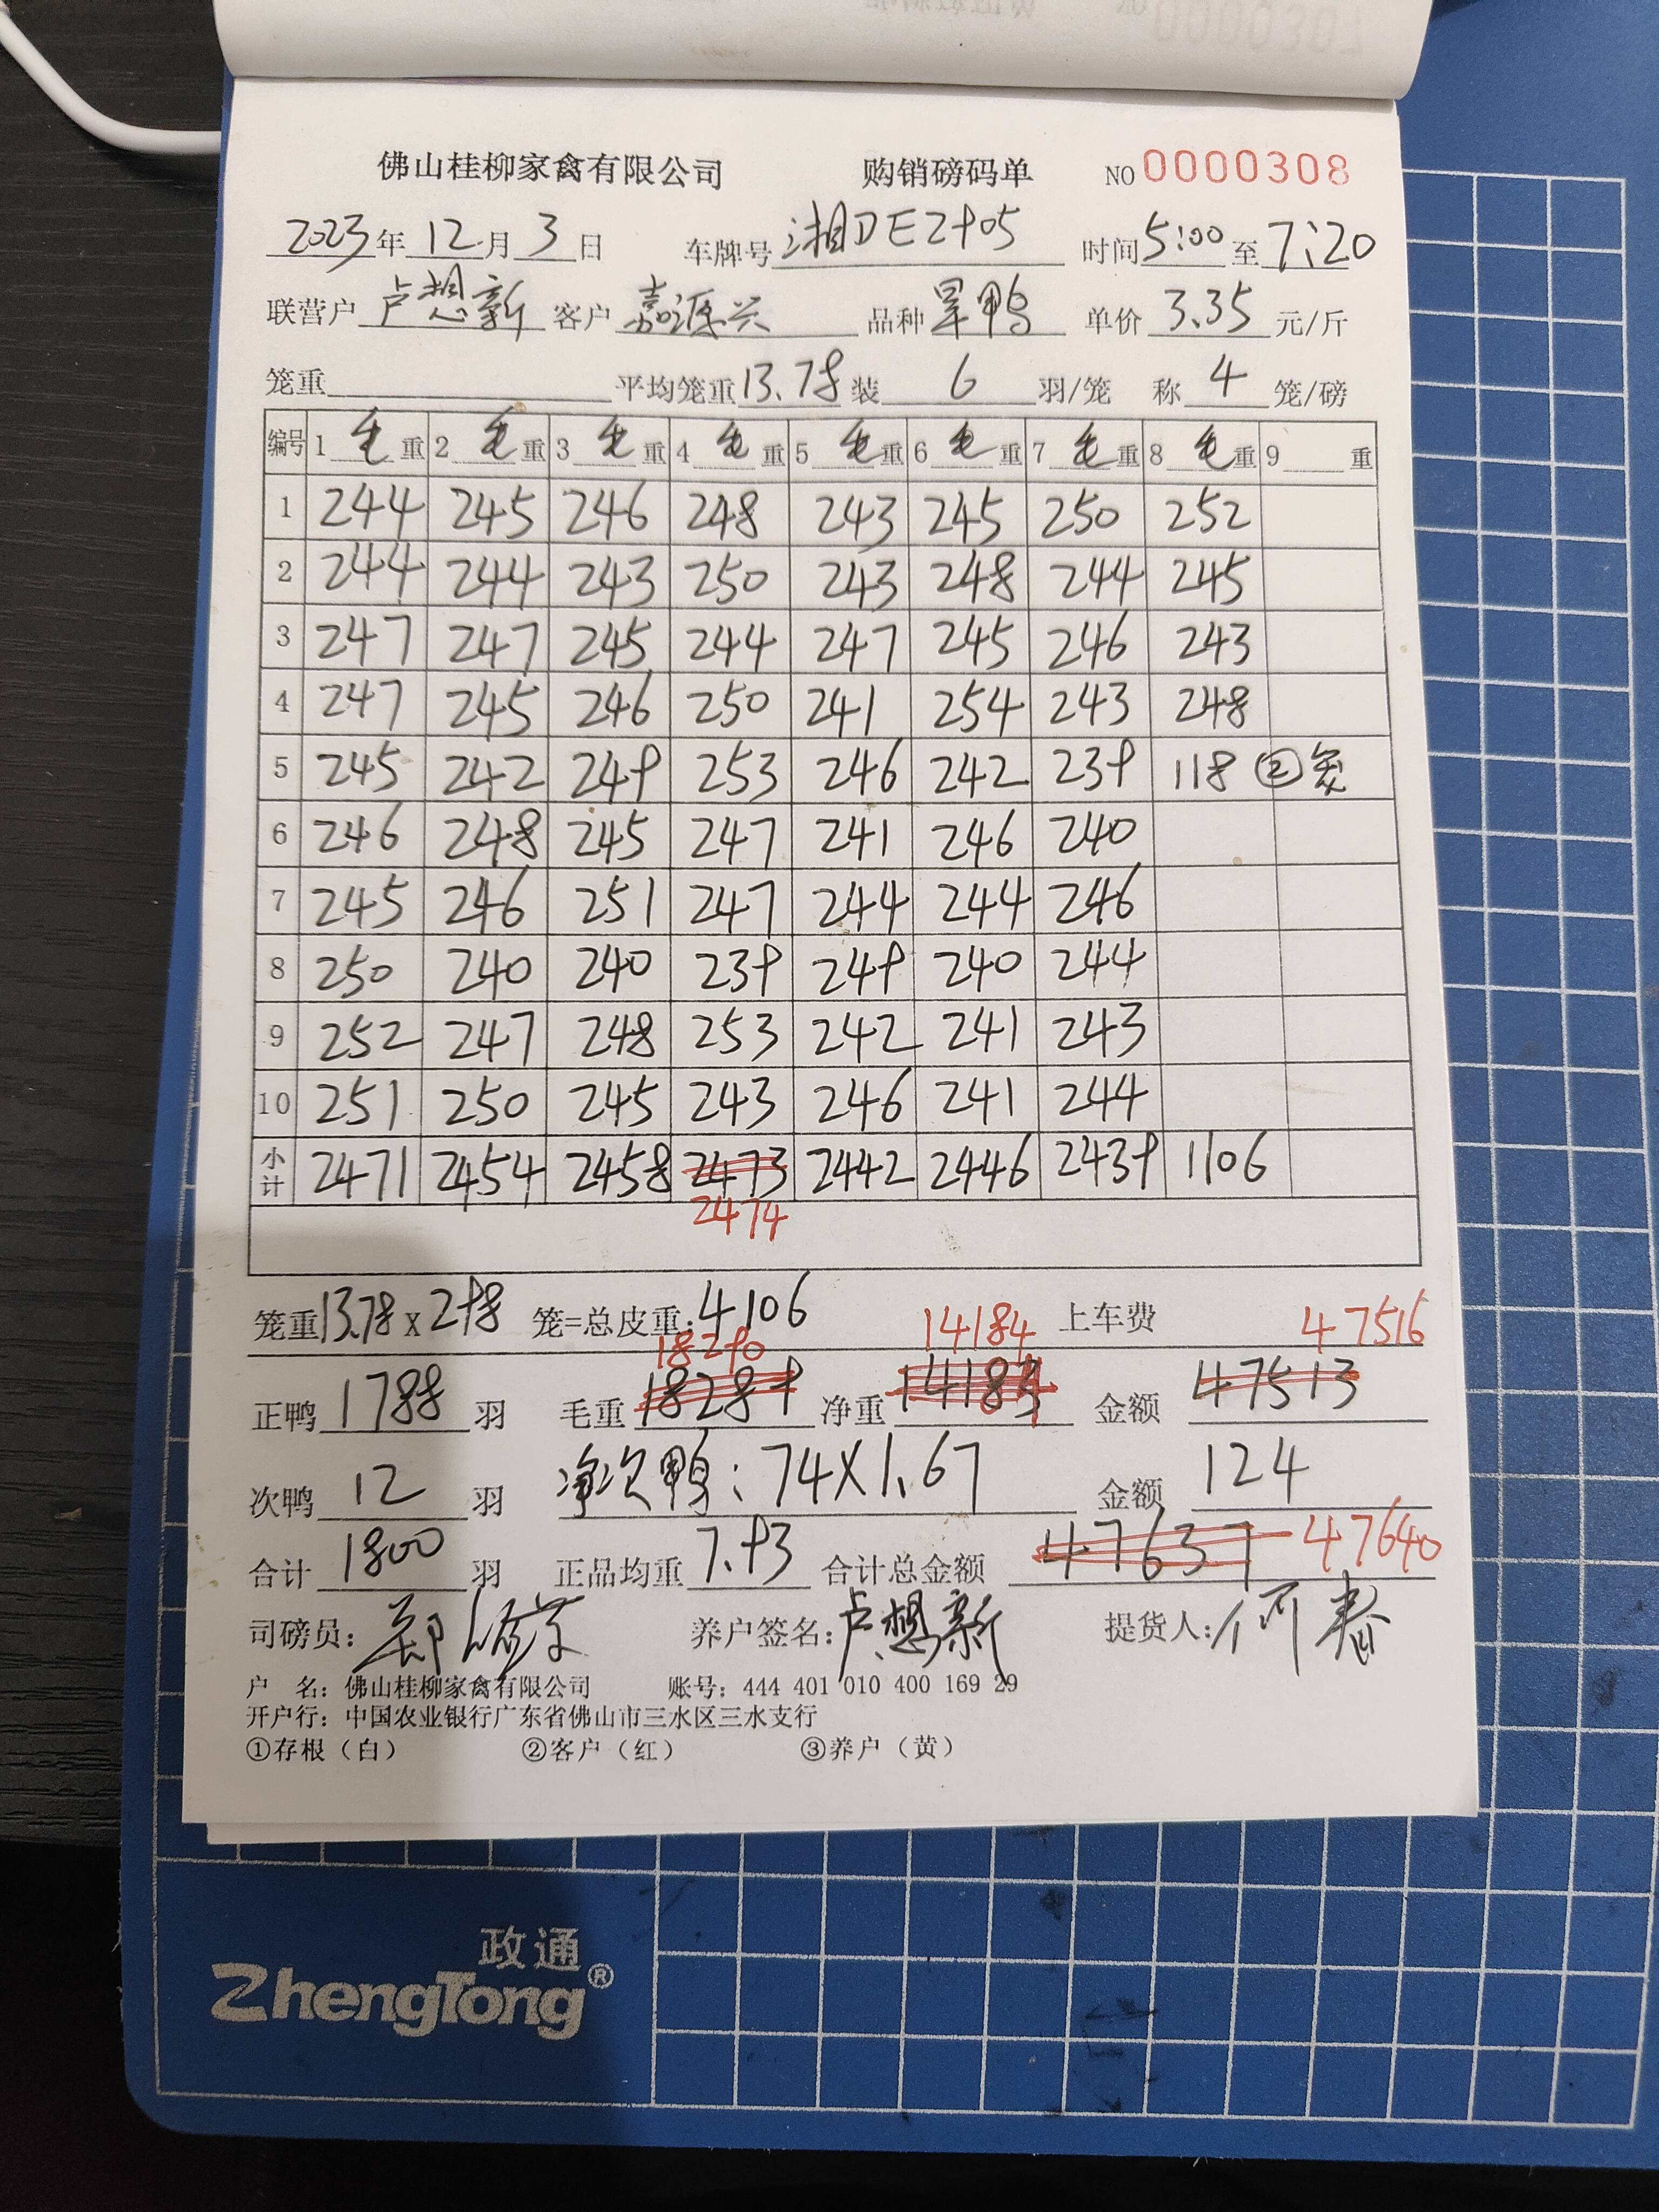 佛山桂柳家禽有限公司 购销磅码单 NO 0000308
2023年12月3日 车牌号湘DE2905 时间5:00至7:20
联营户卢想新 客户嘉源兴 品种旱鸭 单价3.35元/斤
笼重 平均笼重13.78装6羽/笼 称4笼/磅
编号 1毛重 2毛重 3毛重 4毛重 5毛重 6毛重 7毛重 8毛重 9重
1 244 245 246 248 243 245 250 252
2 244 244 243 250 243 248 244 245
3 247 247 245 244 247 245 246 243
4 247 245 246 250 241 254 243 248
5 245 242 249 253 246 242 239 118 ②笼
6 246 248 245 247 241 246 240
7 245 246 251 247 244 244 246
8 250 240 240 239 249 240 244
9 252 247 248 253 242 241 243
10 251 250 245 243 246 241 244
小计 2471 2454 2458 2473 2442 2446 2439 1106
2474
笼重13.78X298笼=总皮重:4106 上车费
18290 14184 47516
正鸭1788羽 毛重18289 净重14183 金额47513
次鸭12羽 净次鸭:74X1.67 金额124
合计1800羽 正品均重7.93 合计总金额47637 47640
司磅员: 养户签名:卢想新 提货人:何春
户 名: 佛山桂柳家禽有限公司 账号: 444 401 010 400 169 29
开户行: 中国农业银行广东省佛山市三水区三水支行
①存根(白) ②客户(红) ③养户(黄)
政通
ZhengTong®